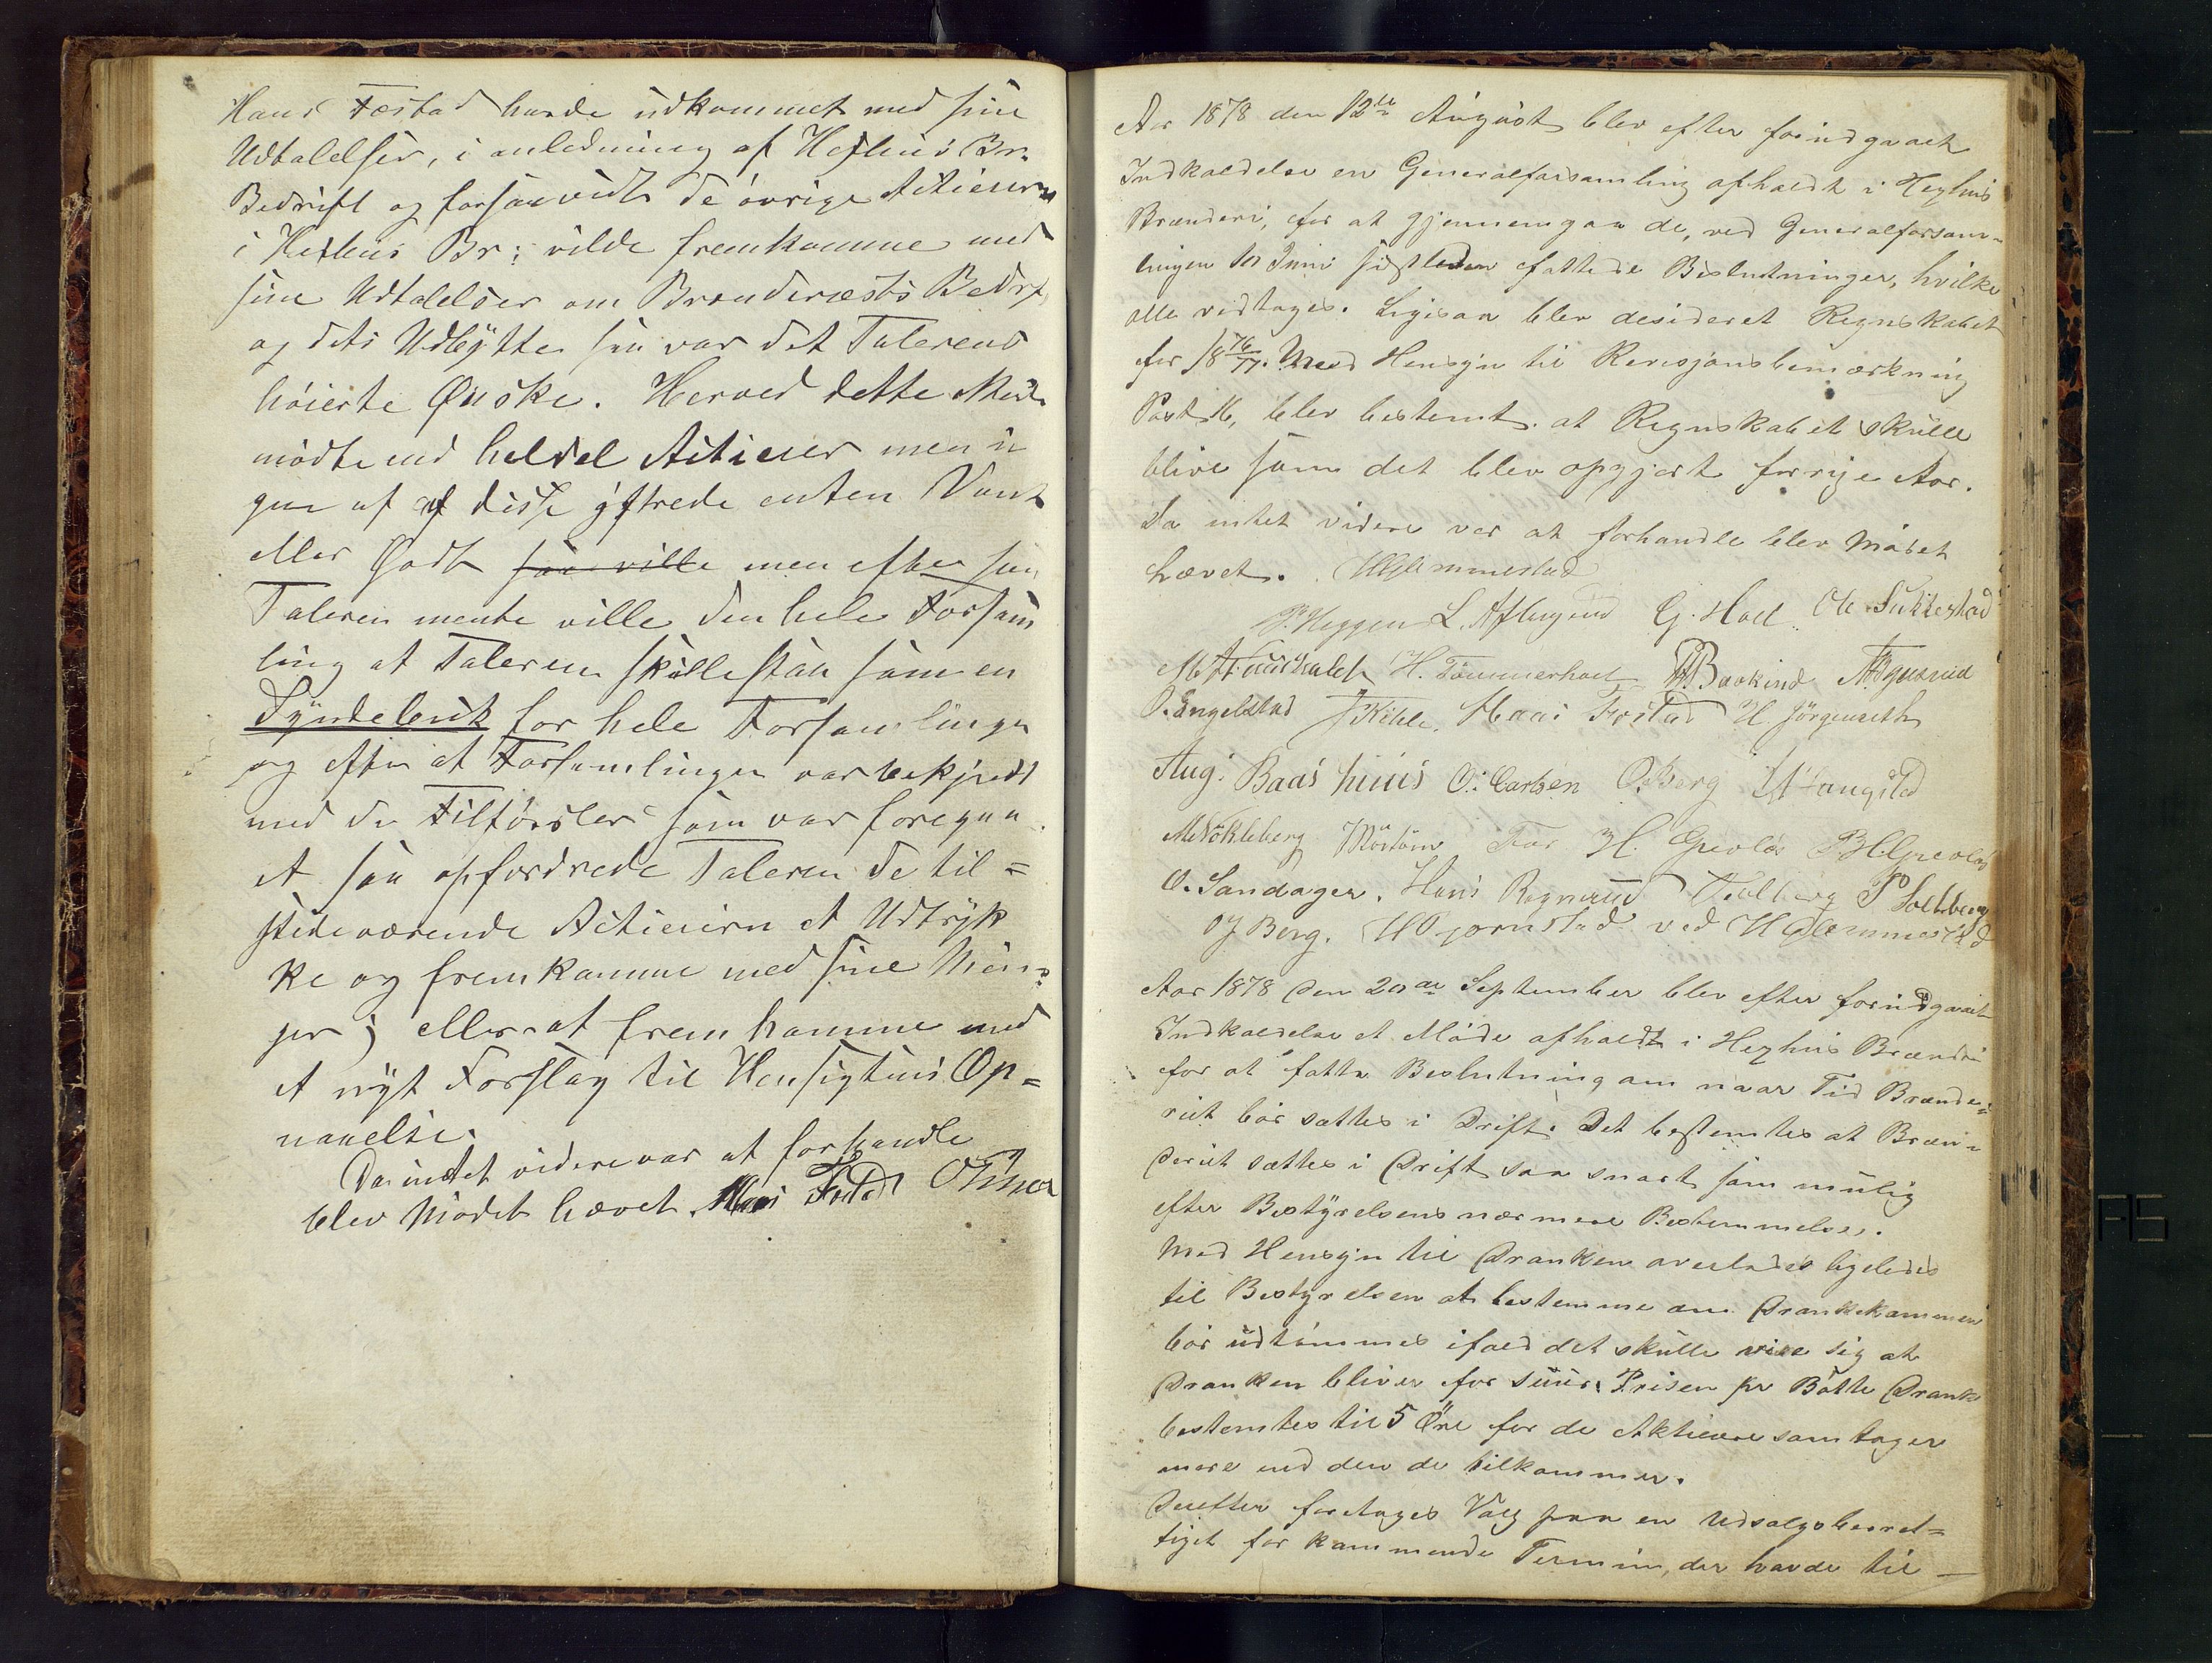 Hans Festad havde udkommet med sine
Udtalelser, i anledning af Heflius Br.
Bedrift og forsaavidt de øvrige Actieiern
i Heflius Br: vilde fremkomme med
sine Udtalelser om Brænderiets Bedr
og dets Udbytte saa var det Talerens
høieste Ønske. Herved dette Møde
mødte en heldel Actieier men in
gen af af disse yttrede enten Vondt
eller Godt saa ville men efter som
Taleren mente ville den hele Forsam
ling at Taleren skulle staa som en
Syndebuk for hele Forsamlingen
og efter at Forsamlingen var bekjendt
med de Tilførsler som var foregaa
et saa opfordrede Taleren de til=
stedeværende Actieiern et Udtryk
ke og fremkomme med sine Menin=
ger; eller at fremkomme med
et nyt Forslag til Hensigtens Op=
naaelse.
Da intet videre var at forhandle
blev Mødet hævet. Hans Festad
Aar 1878 den 12te August blev efter forudgaaet
Indkaldelse en Generalforsamling afholdt i Heghus
Brænderi, for at gjennemgaa de, ved Generalforsam=
lingen i Juni sidstleden fattede Beslutninger, hvilke
alle vedtoges. Ligesaa blev desideret Regnskabet
for 1876/77. Med Hensyn til Revisjonsbemærkning
Post 16, blev bestemt at Regnskabet skulle
blive som det blev opgjort forrige Aar.
Da intet videre var at forhandle blev Mødet
hævet. HGlemmestad
P. Heggen L. Aflugrud G. Hoel Ole Sukkestad
H. Tømmerhoel Baakind
O. Engelstad J Kihle. Hans Festad H. Jørgenseth
Aug. Baashuus O. Carlsen O. Berg
M Nøkleberg For H.
O. Sandager. Hans Rognerud P Solberg
O J Berg. H Bjørnstad ved H Glemmestad
Aar 1878 den 20de September blev efter forudgaaet
Indkaldelse et Møde afholdt i Heghus Brænderi
for at fatte Beslutning om naar Tid Brænde=
riet bør sættes i Drift. Det bestemtes at Bræn=
deriet sættes i Drift saa snart som mulig
efter Bestyrelsens nærmere Bestemmelse.
Med Hensyn til Dranken overlades ligeledes
til Bestyrelsen at bestemme om Drankekummen
bør udtømmes ifald det skulle vise sig at
Dranken bliver for suur. Prisen pr Bøtte Drank
bestemtes til 5 Øre for de Aktieeiere som tager
mere end den de tilkommer.
Derefter foretoges Valg paa en Udsalgsberet=
tiget for kommende Termin, der havde til —